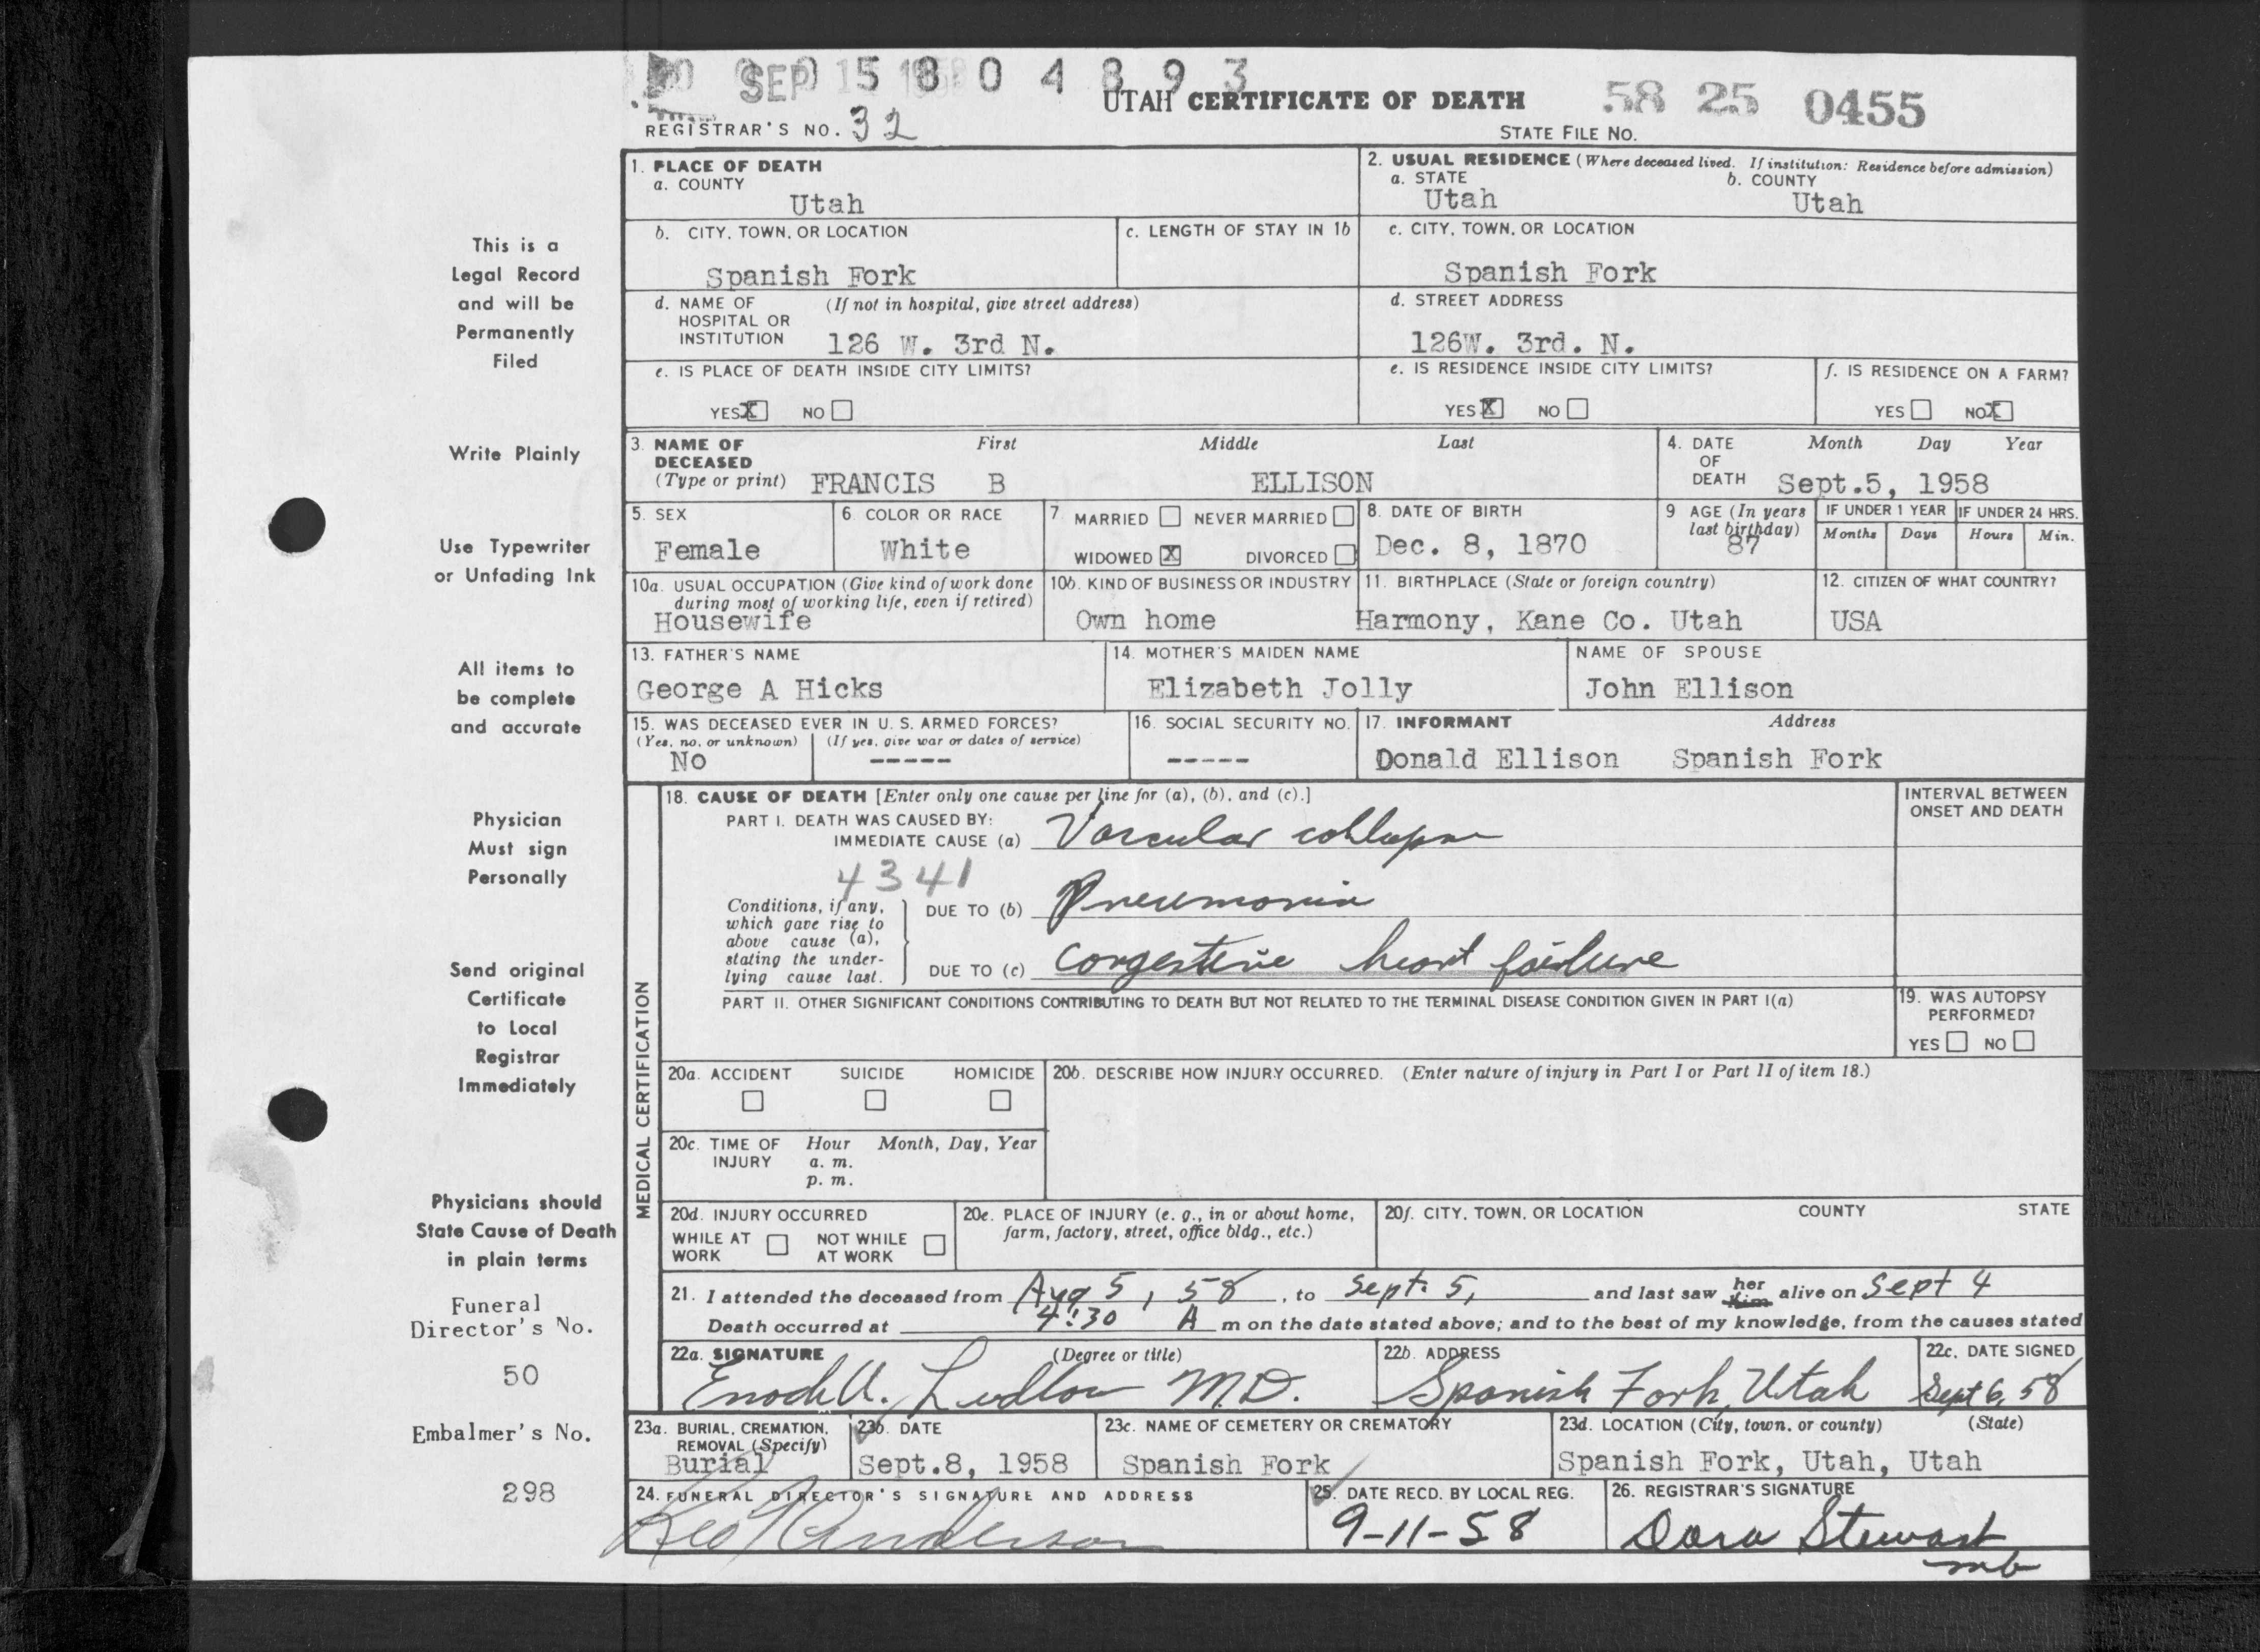 SEP 15 1958
0 5 8 0 4 8 9 3
UTAH CERTIFICATE OF DEATH
58 25 0455
REGISTRAR'S NO. 32
STATE FILE NO.
1. PLACE OF DEATH
a. COUNTY
Utah
2. USUAL RESIDENCE (Where deceased lived. If institution: Residence before admission)
a. STATE
Utah
b. COUNTY
Utah
b. CITY, TOWN, OR LOCATION
Spanish Fork
c. LENGTH OF STAY IN 1b
c. CITY, TOWN, OR LOCATION
Spanish Fork
d. NAME OF (If not in hospital, give street address)
HOSPITAL OR
INSTITUTION 126 W. 3rd N.
d. STREET ADDRESS
126W. 3rd. N.
e. IS PLACE OF DEATH INSIDE CITY LIMITS?
YES X NO
e. IS RESIDENCE INSIDE CITY LIMITS?
YES X NO
f. IS RESIDENCE ON A FARM?
YES NO X
3. NAME OF First Middle Last
DECEASED
(Type or print) FRANCIS B ELLISON
4. DATE Month Day Year
OF
DEATH Sept.5, 1958
5. SEX
Female
6. COLOR OR RACE
White
7. MARRIED NEVER MARRIED
WIDOWED X DIVORCED
8. DATE OF BIRTH
Dec. 8, 1870
9 AGE (In years
last birthday)
87
IF UNDER 1 YEAR
Months Days
IF UNDER 24 HRS.
Hours Min.
10a. USUAL OCCUPATION (Give kind of work done
during most of working life, even if retired)
Housewife
10b. KIND OF BUSINESS OR INDUSTRY
Own home
11. BIRTHPLACE (State or foreign country)
Harmony, Kane Co. Utah
12. CITIZEN OF WHAT COUNTRY?
USA
13. FATHER'S NAME
George A Hicks
14. MOTHER'S MAIDEN NAME
Elizabeth Jolly
NAME OF SPOUSE
John Ellison
15. WAS DECEASED EVER IN U. S. ARMED FORCES?
(Yes, no, or unknown) (If yes, give war or dates of service)
No -----
16. SOCIAL SECURITY NO.
-----
17. INFORMANT Address
Donald Ellison Spanish Fork
MEDICAL CERTIFICATION
18. CAUSE OF DEATH [Enter only one cause per line for (a), (b), and (c).]
INTERVAL BETWEEN
ONSET AND DEATH
PART I. DEATH WAS CAUSED BY:
IMMEDIATE CAUSE (a) Vascular collapse
4341
Conditions, if any,
which gave rise to
above cause (a),
stating the under-
lying cause last.
DUE TO (b) Pneumonia
DUE TO (c) congestive heart failure
PART II. OTHER SIGNIFICANT CONDITIONS CONTRIBUTING TO DEATH BUT NOT RELATED TO THE TERMINAL DISEASE CONDITION GIVEN IN PART I(a)
19. WAS AUTOPSY
PERFORMED?
YES NO
20a. ACCIDENT SUICIDE HOMICIDE
20b. DESCRIBE HOW INJURY OCCURRED. (Enter nature of injury in Part I or Part II of item 18.)
20c. TIME OF Hour Month, Day, Year
INJURY a. m.
p. m.
20d. INJURY OCCURRED
WHILE AT NOT WHILE
WORK AT WORK
20e. PLACE OF INJURY (e. g., in or about home,
farm, factory, street, office bldg., etc.)
20f. CITY, TOWN, OR LOCATION COUNTY STATE
21. I attended the deceased from Aug 5, 58, to Sept. 5, and last saw her him alive on Sept 4
Death occurred at 4:30 A m on the date stated above; and to the best of my knowledge, from the causes stated
22a. SIGNATURE (Degree or title)
Enoch A. Ludlow M.D.
22b. ADDRESS
Spanish Fork, Utah
22c. DATE SIGNED
Sept 6, 58
23a. BURIAL, CREMATION,
REMOVAL (Specify)
Burial
23b. DATE
Sept.8, 1958
23c. NAME OF CEMETERY OR CREMATORY
Spanish Fork
23d. LOCATION (City, town, or county) (State)
Spanish Fork, Utah, Utah
24. FUNERAL DIRECTOR'S SIGNATURE AND ADDRESS
Anderson
25. DATE RECD. BY LOCAL REG.
9-11-58
26. REGISTRAR'S SIGNATURE
Dora Stewart
mb
This is a
Legal Record
and will be
Permanently
Filed
Write Plainly
Use Typewriter
or Unfading Ink
All items to
be complete
and accurate
Physician
Must sign
Personally
Send original
Certificate
to Local
Registrar
Immediately
Physicians should
State Cause of Death
in plain terms
Funeral
Director's No.
50
Embalmer's No.
298